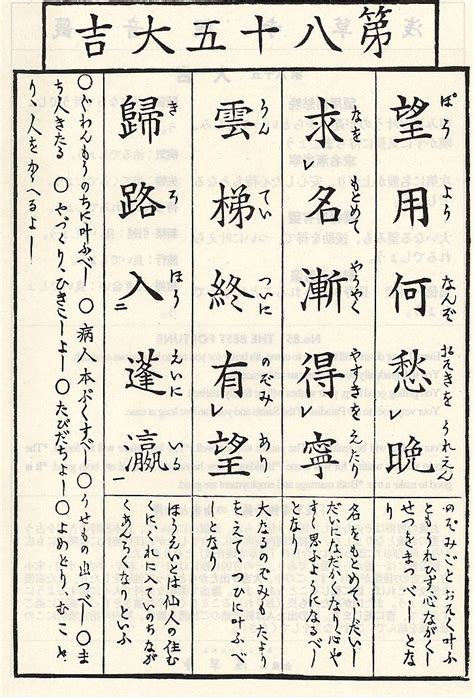 第八十五大吉
望用何愁晩
ばう より なんぞ おそきをうれえん
求レ名漸得レ寧
なをもとめて やうやく やすきをえたり
雲梯終有レ望
うんてい ついに のぞみあり
歸路入二蓬瀛一
きろ ほうえいに いる
のぞみごとおそく叶ふ
ともうれひず、心ながく
せつをまつべしとな
り
名をもとめて、しだい
だいになだかくなり、心や
すく思ふようになるべし
となり
大なるのぞみもたより
をえて、つひに叶ふべ
しとなり
ほうえいとは仙人の住む
くにこれに入ていのちなが
くあんらくなりといふ
○ぐわんものちに叶ふべし ○病人本ぷくすべし ○うせもの出づべし ○ま
ち人きたる ○やづくり、ひきこしよし ○たびだちよし ○よめどり、むこと
り、人をかゝへるよし